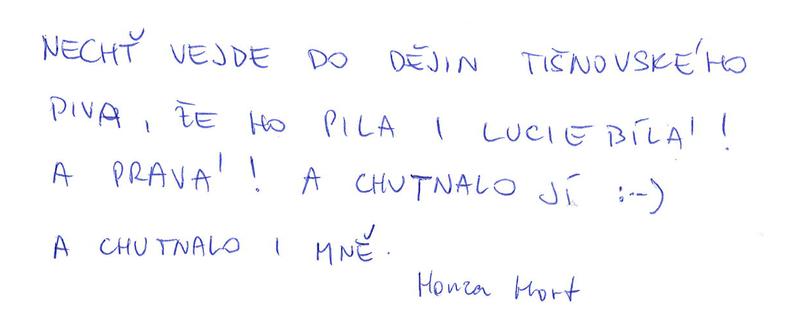 NECHŤ VEJDE DO DĚJIN TIŠNOVSKÉHO
PIVA, ŽE HO PILA I LUCIE BÍLÁ!
A PRAVÁ! A CHUTNALO JÍ :--)
A CHUTNALO I MNĚ.
Honza Hort